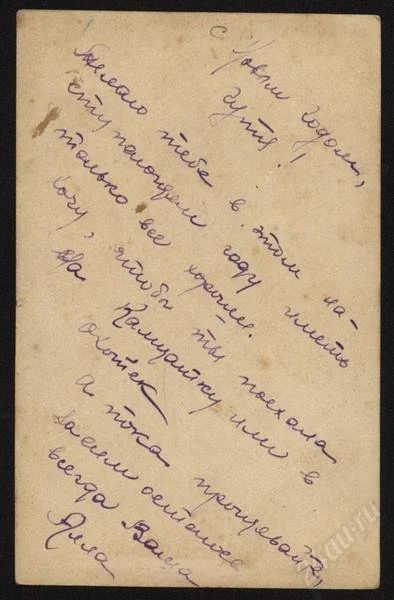 С Новым Годом,
Гутя!
Желаю тебе в этом на-
ступающем году иметь
только все хорошее.
Хочу, чтобы ты поехала
на Камчатку или в
Охотск
А пока прощевайте,
Засим остаюсь
всегда Ваша
Алла
au.ru